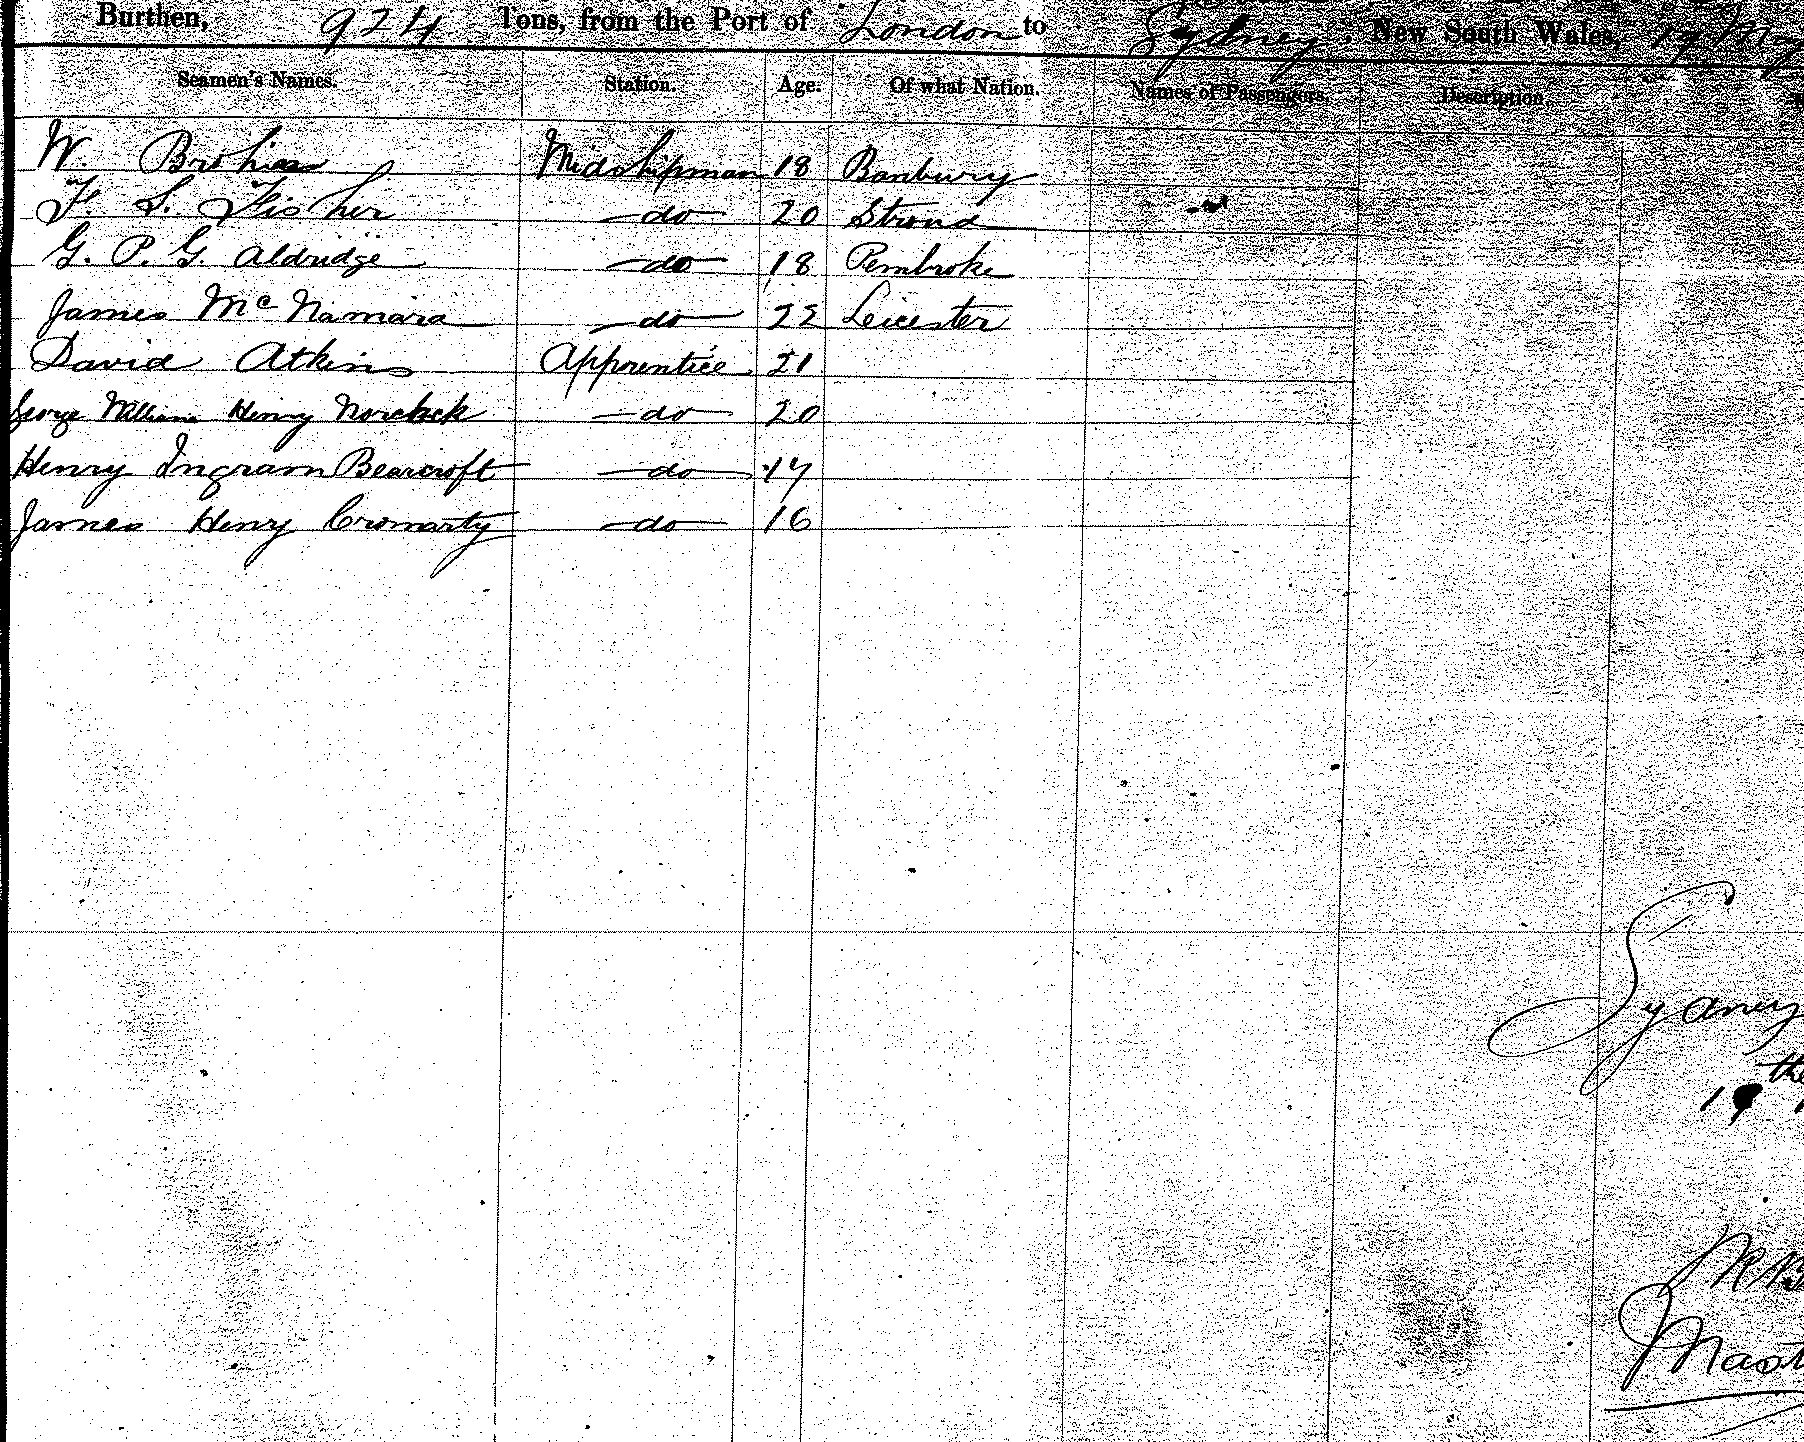 Burthen, 924 Tons, from the Port of London to Sydney, New South Wales, 19 May
Seamen's Names. Station. Age. Of what Nation. Names of Passengers. Description.
W. Midshipman 18 Banbury
F. S. Fisher do 20 Strond
G. P. G. Aldridge do 18 Pembroke
James McNamara do 22 Leicester
David Atkins Apprentice 21
George William Henry do 20
Henry Ingram Bearcroft do 17
James Henry Cromarty do 16
Sydney
the
19